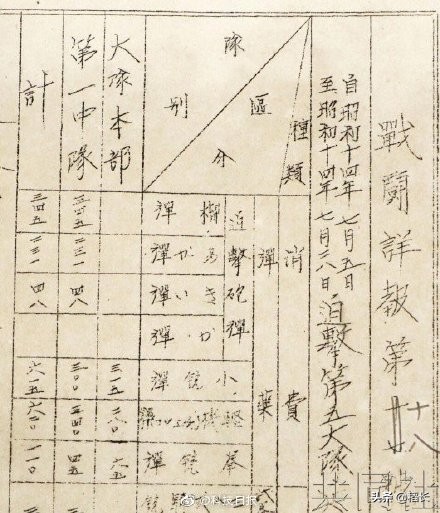 戰鬪詳報第十八
自昭和十四年七月五日
至昭和十四年七月二八日
迫擊第五大隊
種類
消費
彈藥
隊區分
別
迫擊砲彈
榴彈
あか彈
きい彈
彈
小銃彈
輕機
拳銃彈
大隊本部
三一五
二八〇
六五
第一中隊
三四五
二三一
四八
三〇〇
四五
計
三四五
二三一
四八
六一五
一一〇
@科技日报
头条@稻长
共同社